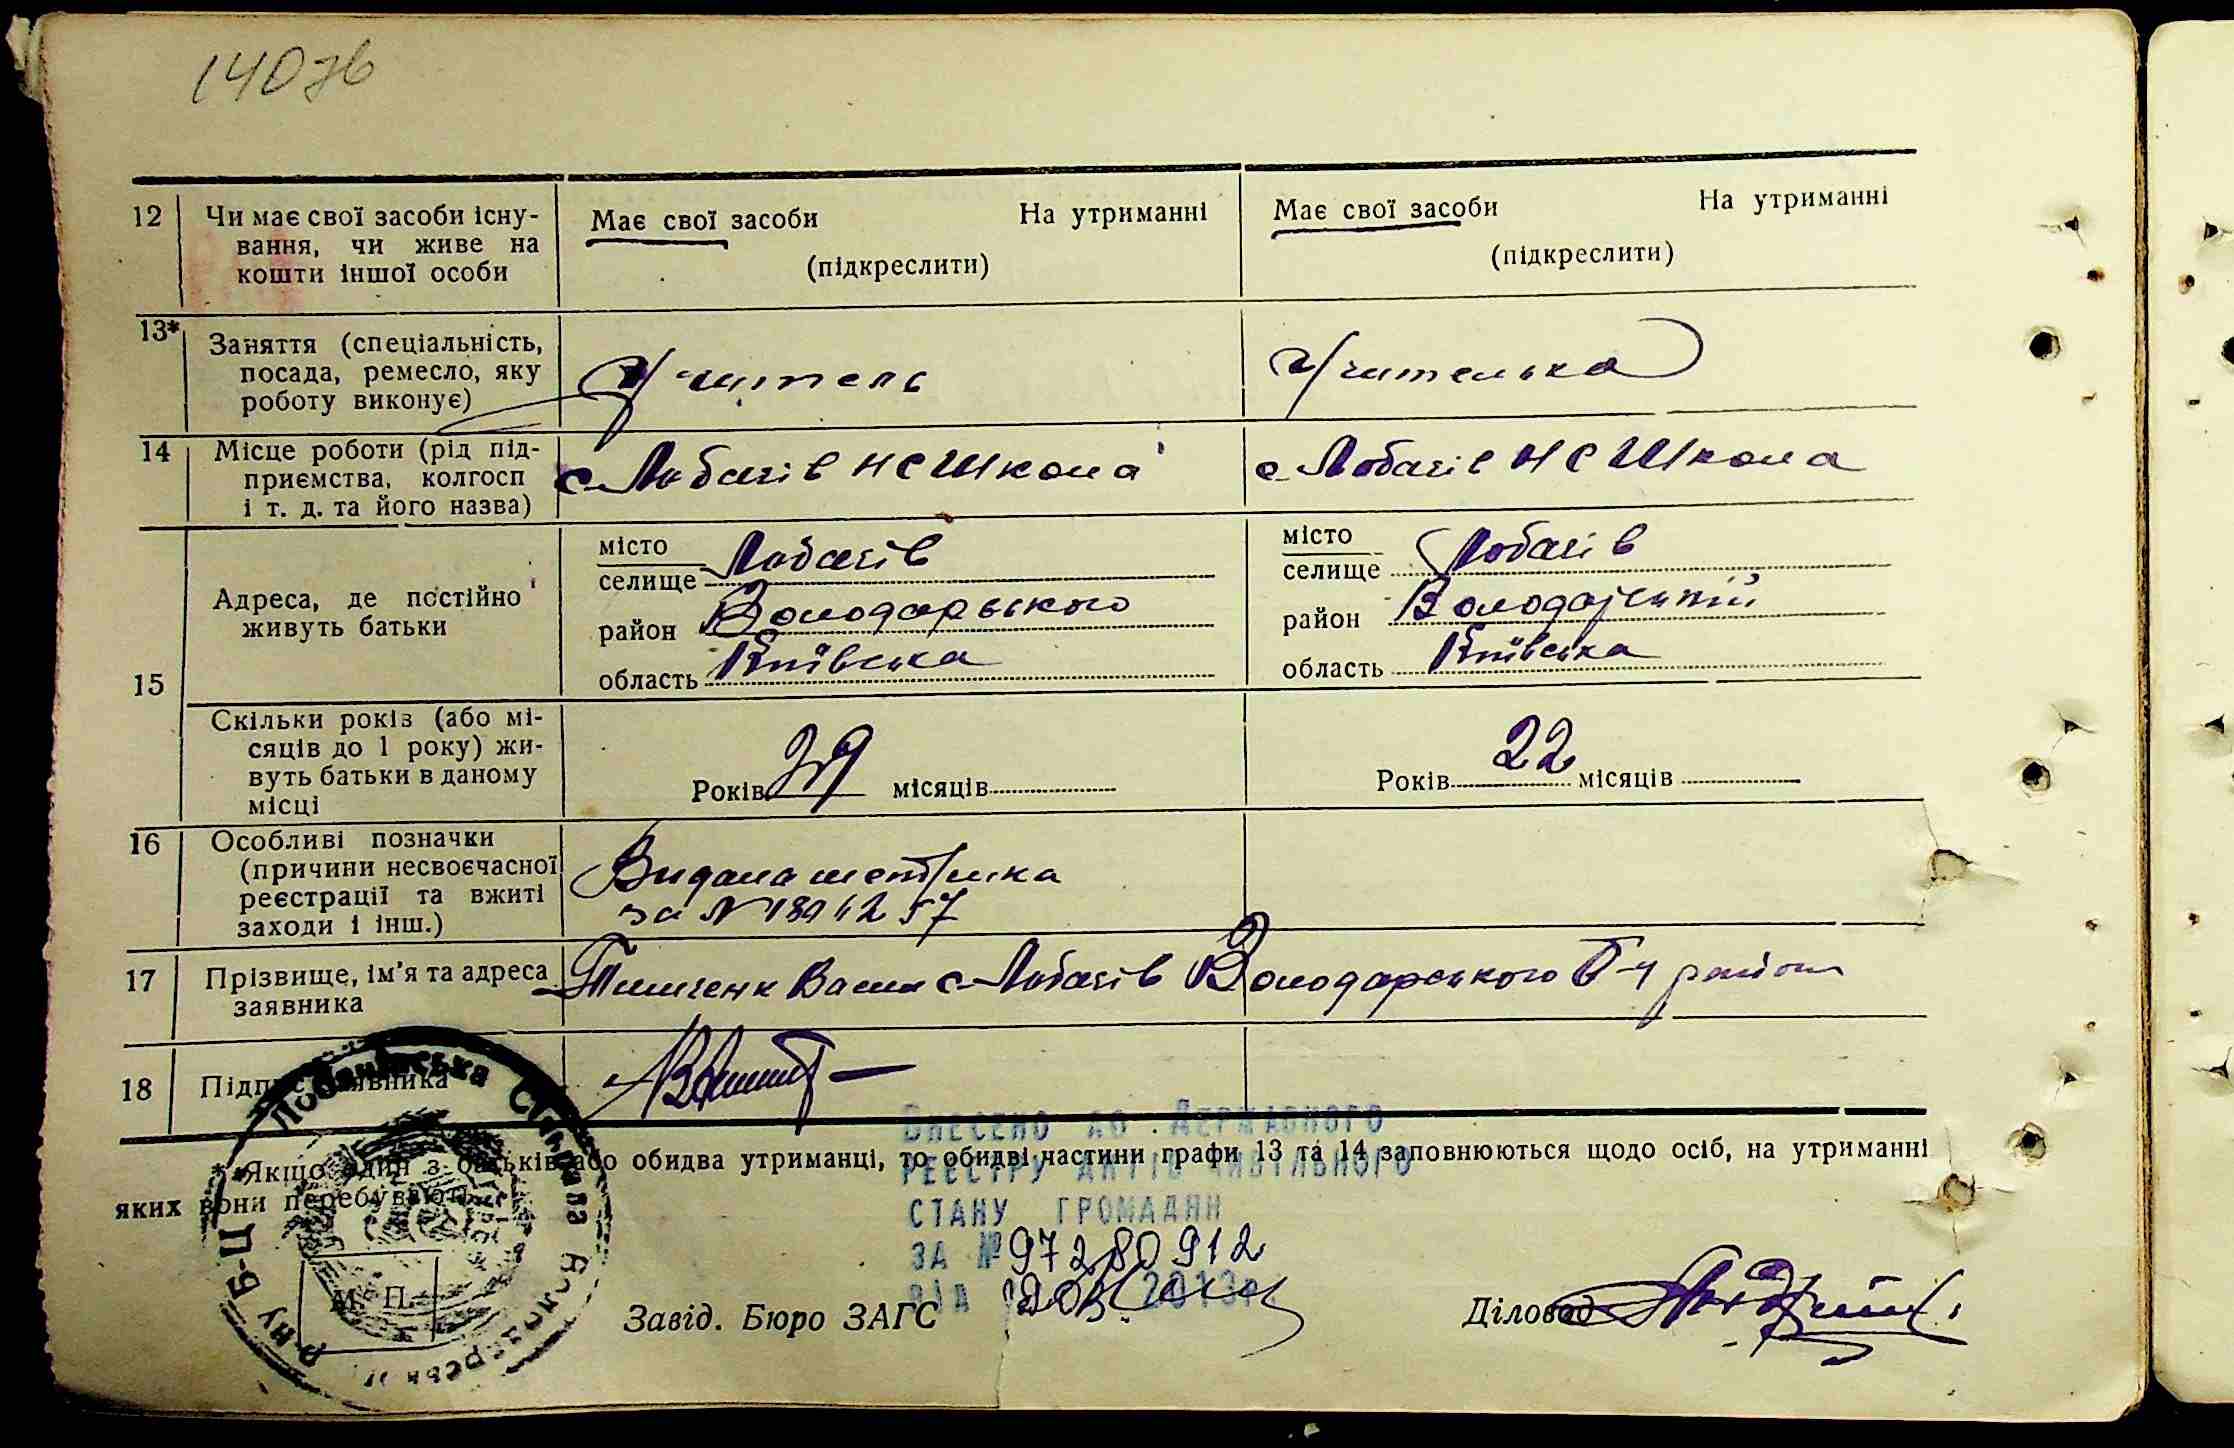 140зв
12 Чи має свої засоби існу-
вання, чи живе на
кошти іншої особи
Має свої засоби На утриманні
(підкреслити)
Має свої засоби На утриманні
(підкреслити)
13* Заняття (спеціальність,
посада, ремесло, яку
роботу виконує)
Учитель
Учителька
14 Місце роботи (рід під-
приємства, колгосп
і т. д. та його назва)
с Лобачів НСШкола
с Лобачів НСШкола
15
Адреса, де постійно
живуть батьки
місто
селище Лобачів
район Володарського
область Київська
місто
селище Лобачів
район Володарський
область Київська
Скільки років (або мі-
сяців до 1 року) жи-
вуть батьки в даному
місці
Років місяців
Років 22 місяців
16 Особливі позначки
(причини несвоєчасної
реєстрації та вжиті
заходи і інш.)
Видана метрика
за №
17 Прізвище, ім'я та адреса
заявника
Васил с Лобачів Володарського району
18 Підпис заявника
* Якщо один з батьків або обидва утриманці, то обидві частини графи 13 та 14 заповнюються щодо осіб, на утриманні
яких вони перебувають.
Внесено до Державного
реєстру актів цивільного
стану громадян
за № 97280912
від 2013р
М. П.
Лобачівська Сільрада Володарськ р-ну Б-Ц
Завід. Бюро ЗАГС
Діловод